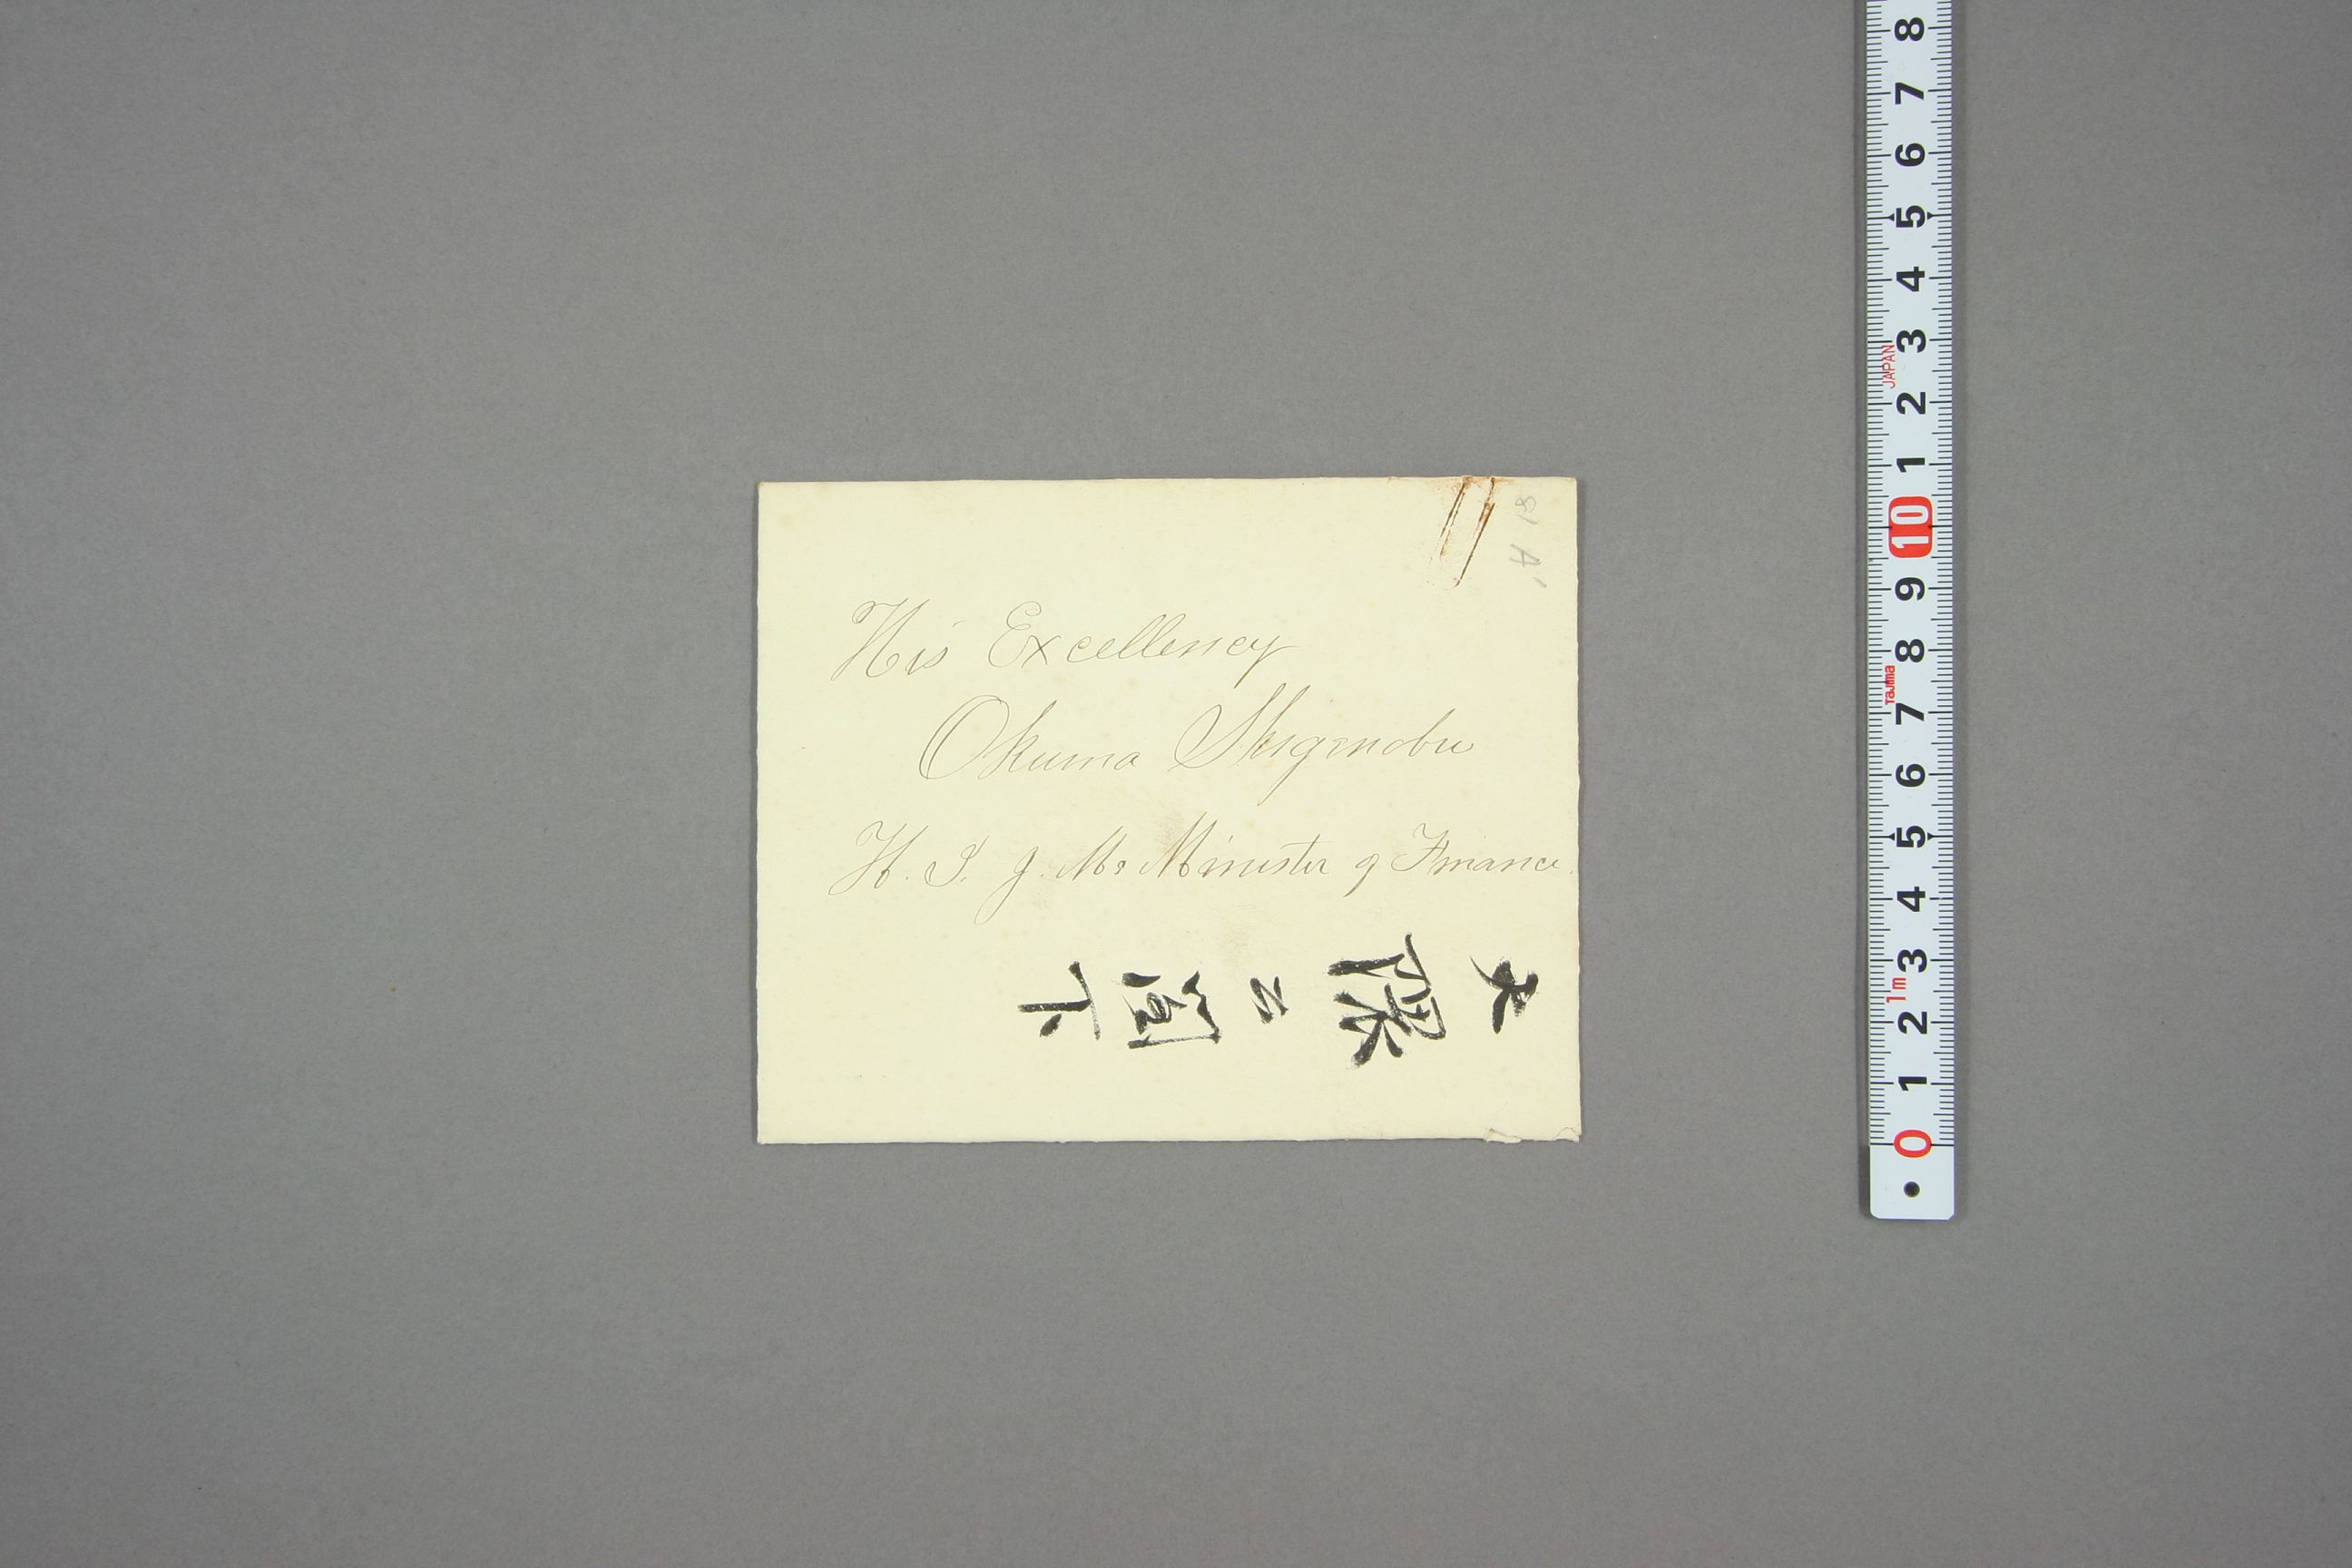 His Excellency
Okuma Shigenobu
H. I. J. Ms Minister of Finance.
大隈公閣下
81 A'
8
7
6
5
4
3
JAPAN
2
1
10
9
8
Tajima
7
6
5
4
3
1m
2
1
0